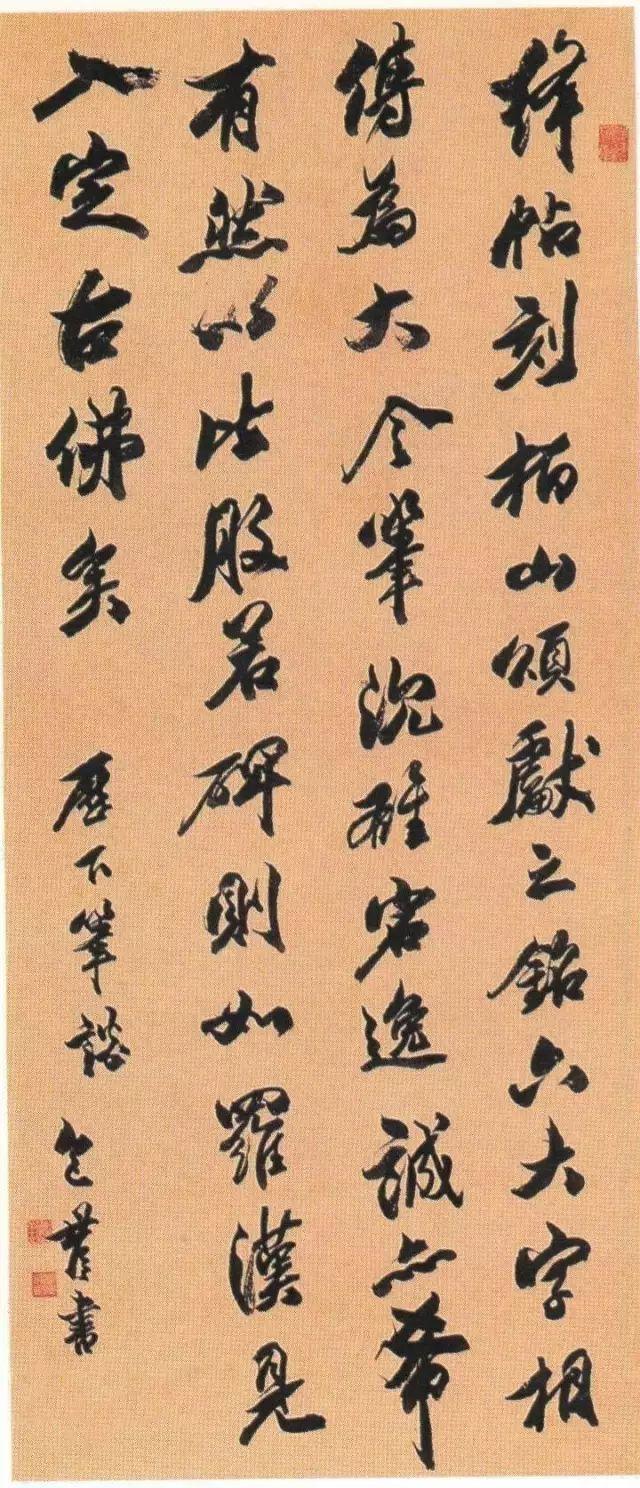 絳帖刻栢山頌獻之銘六大字相
傳為大令筆沉雄宕逸誠亦希
有然以比般若碑則如羅漢見
入定古佛矣 歷下筆談 包書